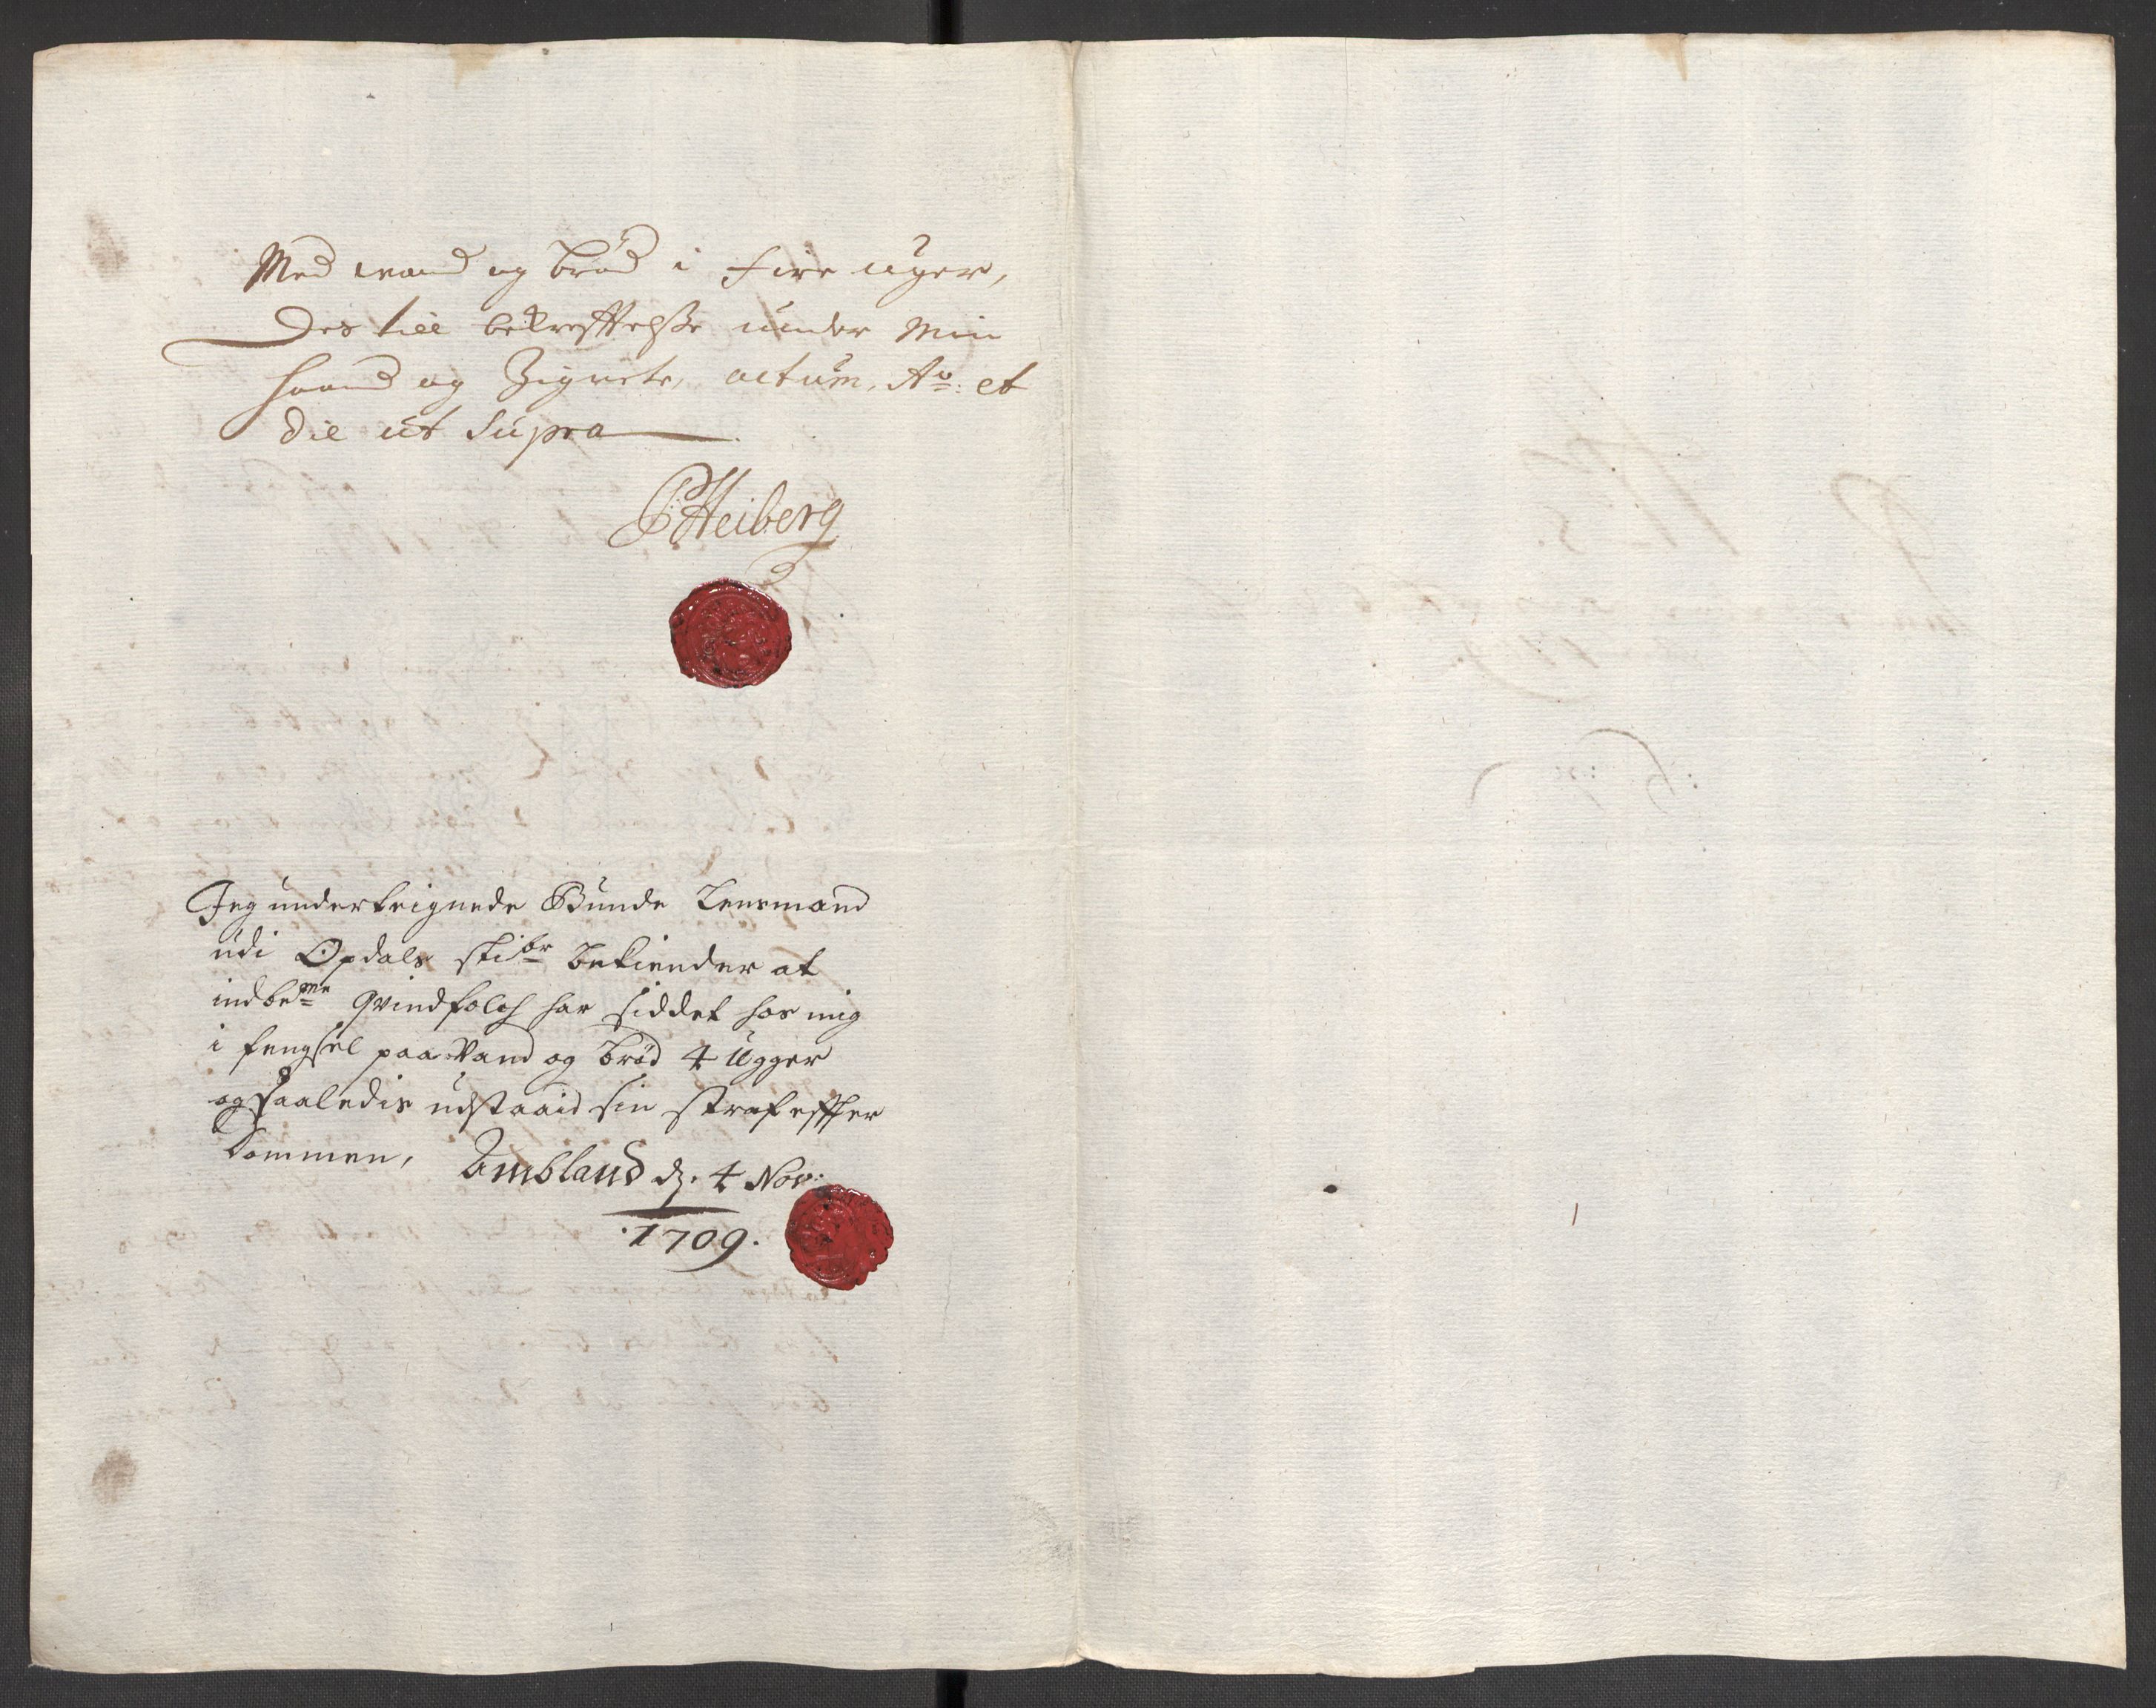 Med wand og brød i fire uger,
Des till bekrefftelsse under Min
haand og Zignete, actum, Aº: et
die ut supra
P Heiberg
Jeg underteignede Bunde Lensmand
udi Opdals skibr bekiender at
indbeme Qvindfolch har siddet hos mig
i fengsel paa Vand og brød 4 Ugger
og saaledis udstaaid sin straf effter
Dommen, Ambland d. 4 Nov:
·1709·